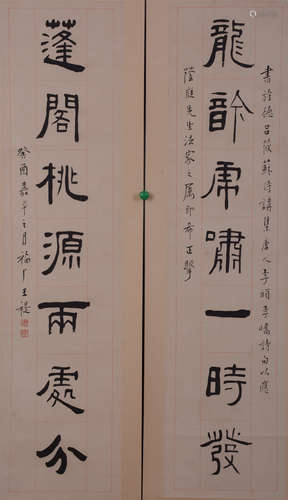 書旌德呂筱蘇侍講集唐人李頎李嶠詩句以應
龍䪩虎嘯一時發
庭先生法家之屬即希正擘
蓬閣桃源兩處分
癸酉嘉平之月福厂王禔